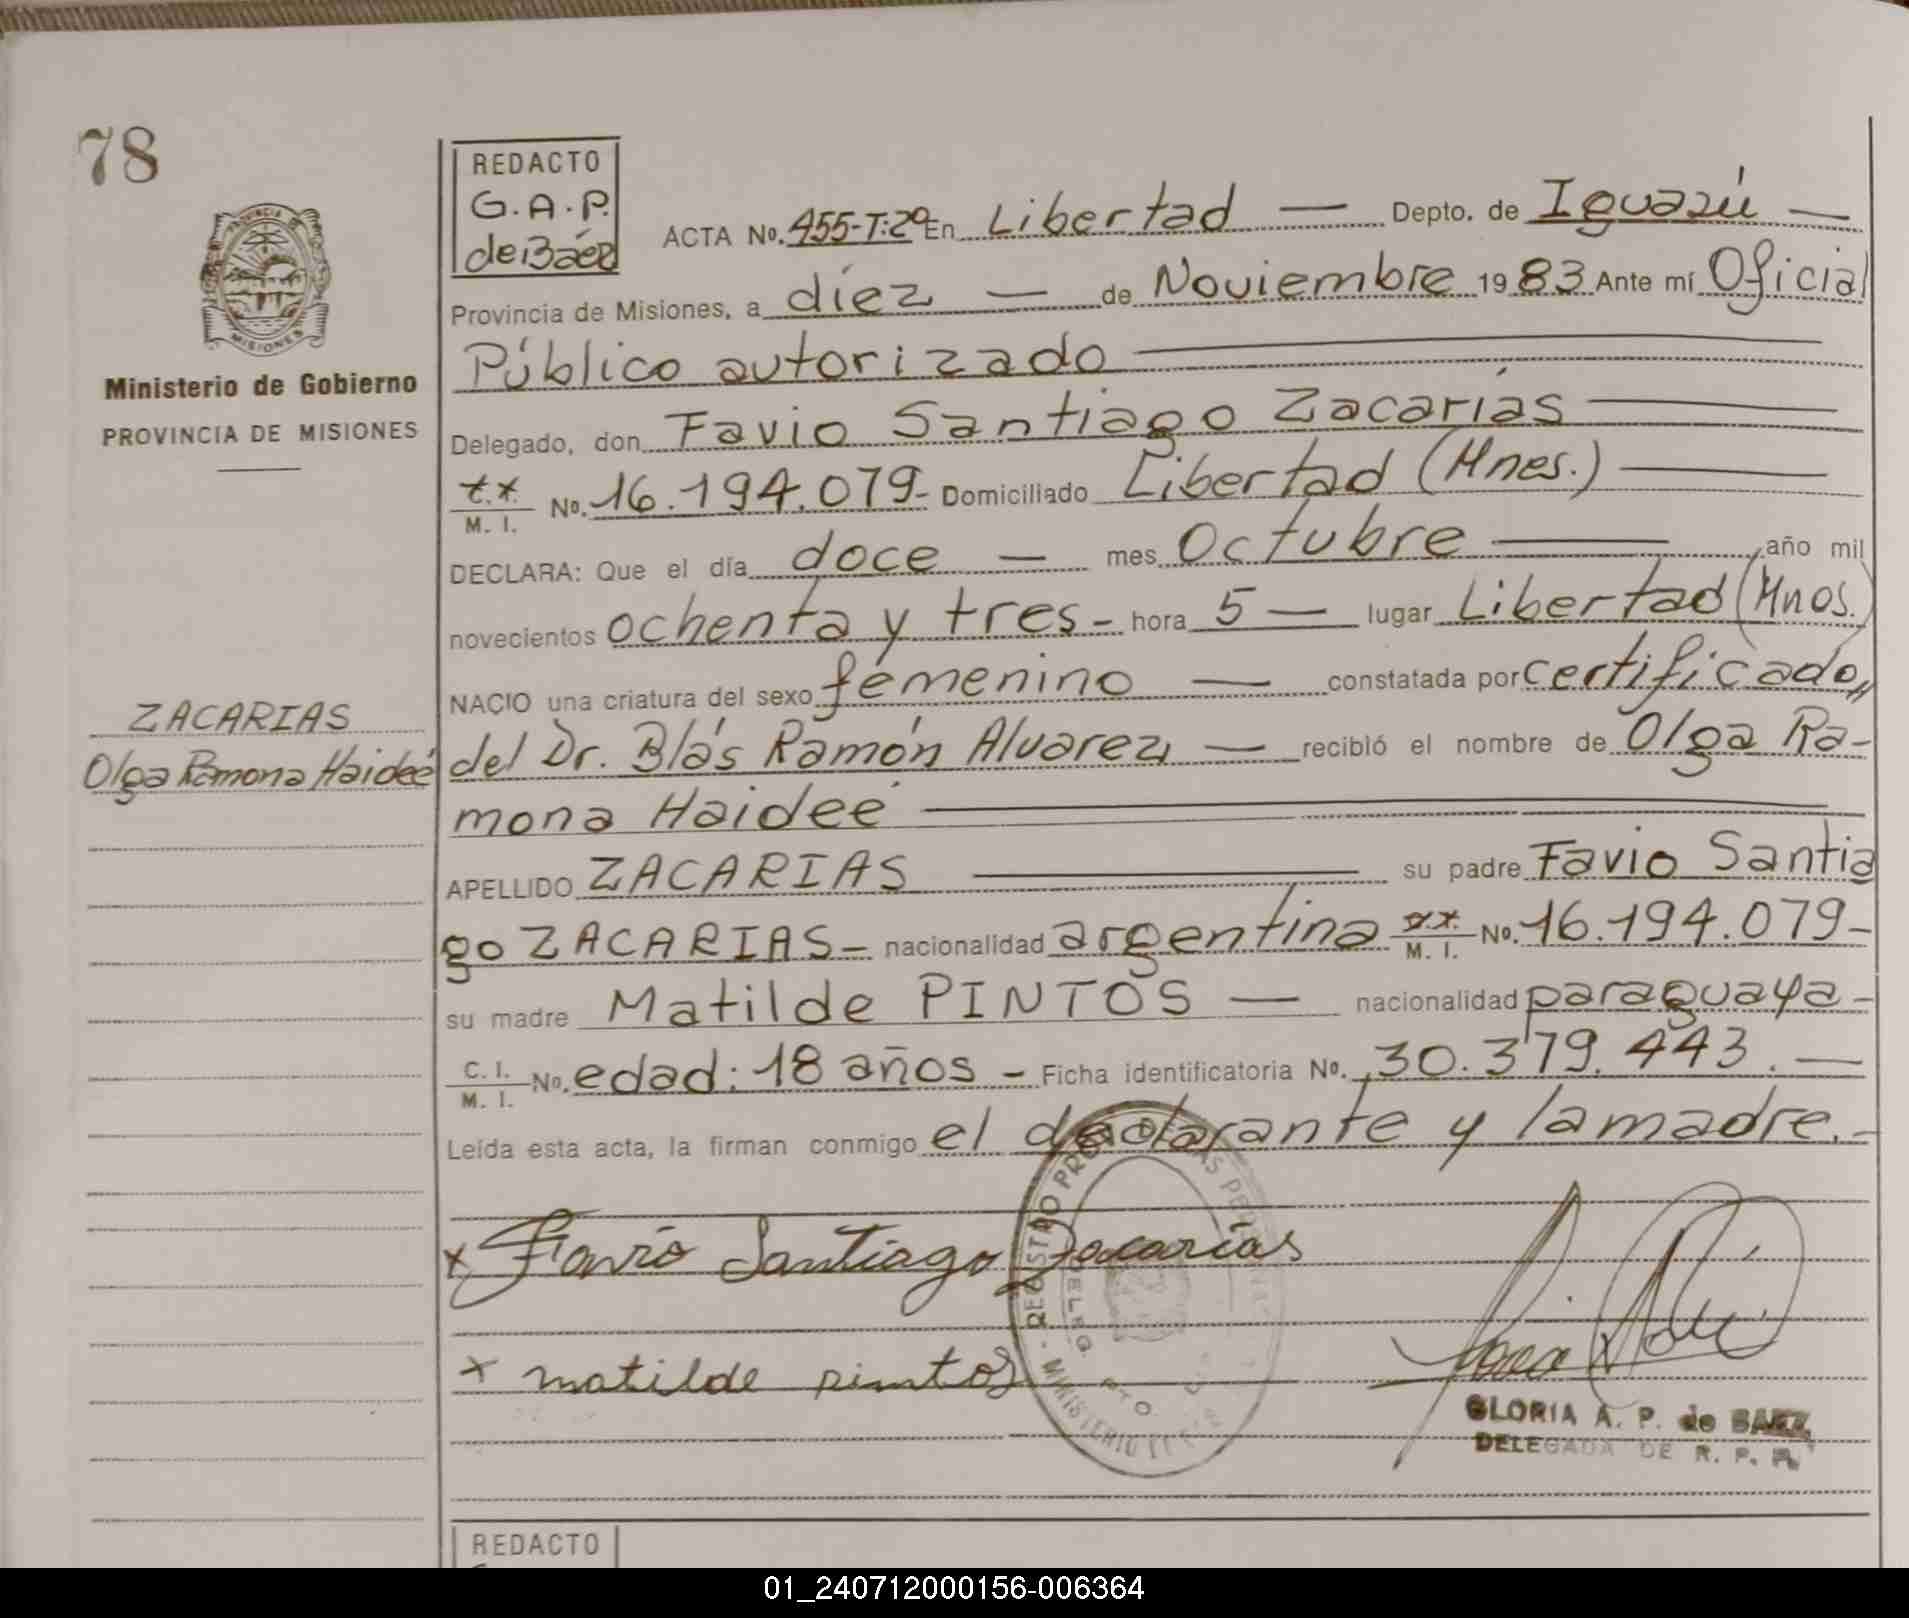 78
PROVINCIA DE
MISIONES
Ministerio de Gobierno
PROVINCIA DE MISIONES
ZACARIAS
Olga Ramona Haideé
REDACTO
G.A.P.
de Báez
ACTA No. 455-T:2º En Libertad — Depto. de Iguazú —
Provincia de Misiones, a diez — de Noviembre 1983 Ante mí Oficial
Público autorizado
Delegado, don Favio Santiago Zacarías
M. I. No. 16.194.079- Domiciliado Libertad (Mnes.)
DECLARA: Que el día doce — mes Octubre — año mil
novecientos ochenta y tres - hora 5 — lugar Libertad (Mnos.)
NACIO una criatura del sexo femenino — constatada por certificado,,
del Dr. Blás Ramón Alvarez — recibió el nombre de Olga Ra-
mona Haideé
APELLIDO ZACARIAS — su padre Favio Santia
go ZACARIAS - nacionalidad argentina M. I. No. 16.194.079-
su madre Matilde PINTOS — nacionalidad paraguaya -
C. I. M. I. No. edad: 18 años - Ficha identificatoria No. 30.379.443. —
Leída esta acta, la firman conmigo el declarante y la madre. -
x Favio Santiago Zacarías
x matilde pintos
REGISTRO PRO AS PERSONAS
DELEG.
MINISTERIO DE
GLORIA A. P. de BAEZ
DELEGADA DE R. P. P.
REDACTO
01_240712000156-006364